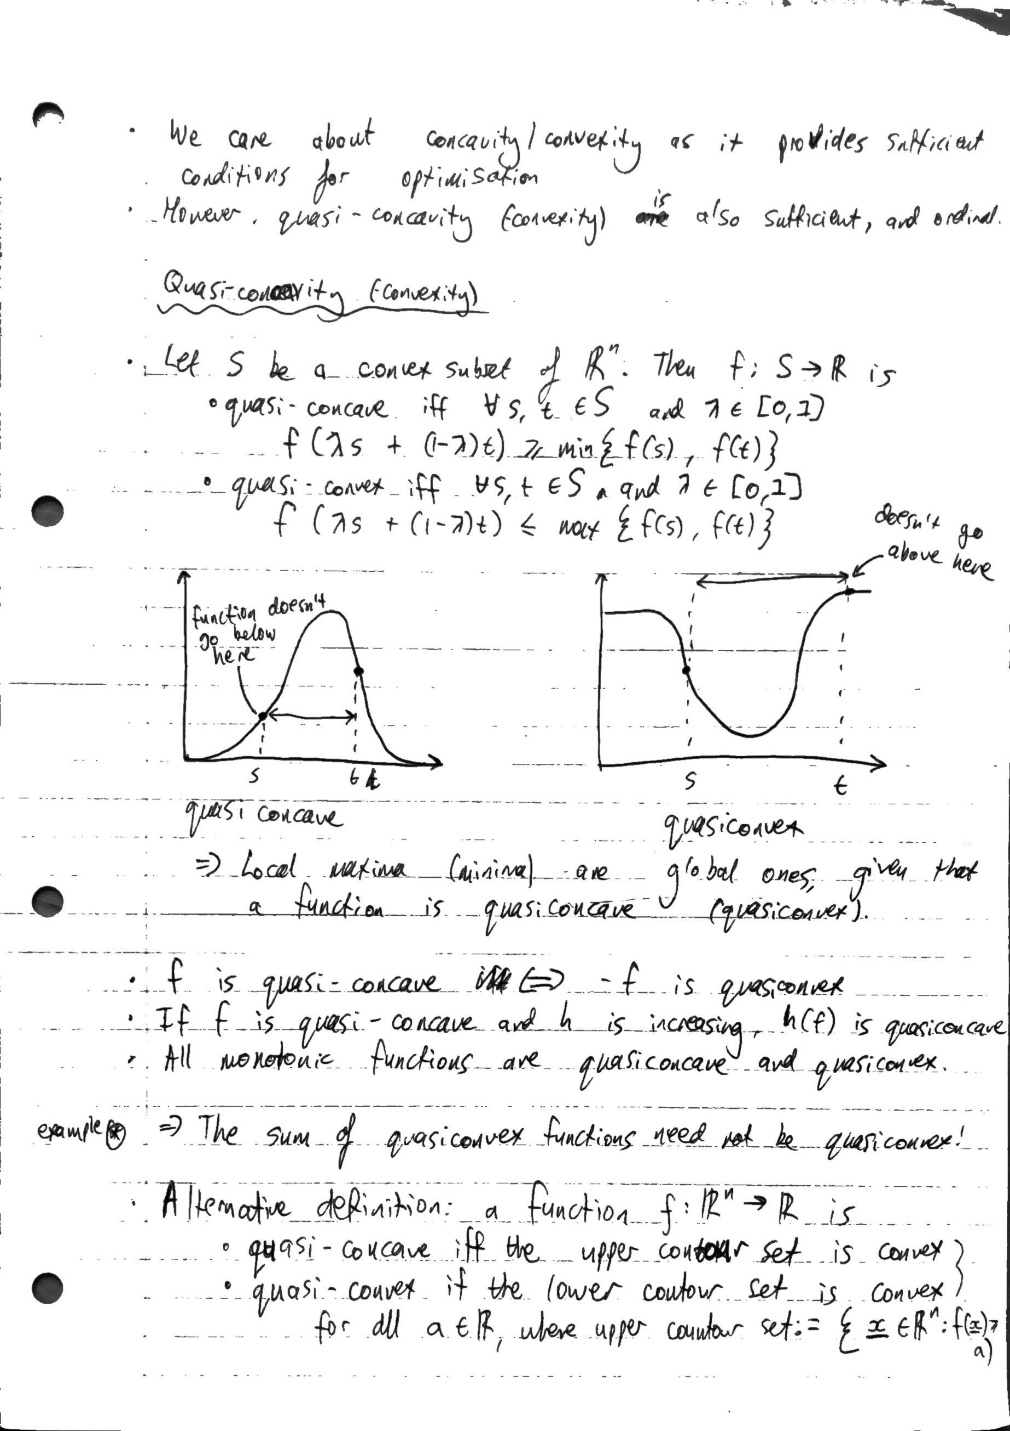 · We care about concavity/convexity as it provides sufficient
conditions for optimisation
· However, quasi-concavity (convexity) is also sufficient, and ordinal.
Quasi-concavity (-convexity)
· Let S be a convex subset of ℝⁿ. Then f: S → ℝ is
∘ quasi-concave iff ∀ s, t ∈ S and λ ∈ [0,1]
f (λs + (1-λ)t) ⩾ min{f(s), f(t)}
∘ quasi-convex iff ∀s, t ∈ S and λ ∈ [0,1]
f (λs + (1-λ)t) ≤ max {f(s), f(t)}
doesn't go
above here
function doesn't
go below
here
s t
s t
quasi concave
quasiconvex
⇒ Local maxima (minima) are global ones, given that
a function is quasiconcave (quasiconvex).
· f is quasi-concave ⇔ -f is quasiconvex
· If f is quasi-concave and h is increasing, h(f) is quasiconcave
· All monotonic functions are quasiconcave and quasiconvex.
example ⊛ ⇒ The sum of quasiconvex functions need not be quasiconvex!
· Alternative definition: a function f: ℝⁿ → ℝ is
∘ quasi-concave iff the upper contour set is convex }
∘ quasi-convex if the lower contour set is convex }
for all a ∈ ℝ, where upper countour set := { x ∈ ℝⁿ : f(x) ⩾
a}